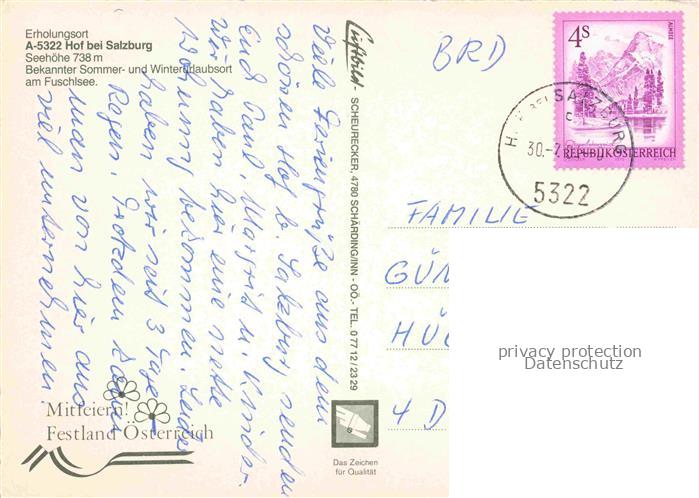 Erholungsort
A-5322 Hof bei Salzburg
Seehöhe 738 m
Bekannter Sommer- und Winterurlaubsort
am Fuschlsee.
Viele Feriengrüße aus dem
schönen Hof b. Salzburg senden
Euch Paul, Margrid u. Kinder.
Wir haben hier eine nette
Wohnung bekommen. Leider
haben wir seit 3 Tagen
Regen. Trotzdem kann
man von hier aus
viel unternehmen
Mitfeiern!
Festland Österreich
Luftbild - SCHEURECKER, 4780 SCHÄRDING/INN - OÖ.- TEL. 0 77 12 / 23 29
Das Zeichen
für Qualität
BRD
4S
ALMSEE
REPUBLIK ÖSTERREICH
BEI SALZBURG
c
30.-7.
5322
FAMILIE
GÜN
HÜ
4 D
privacy protection
Datenschutz